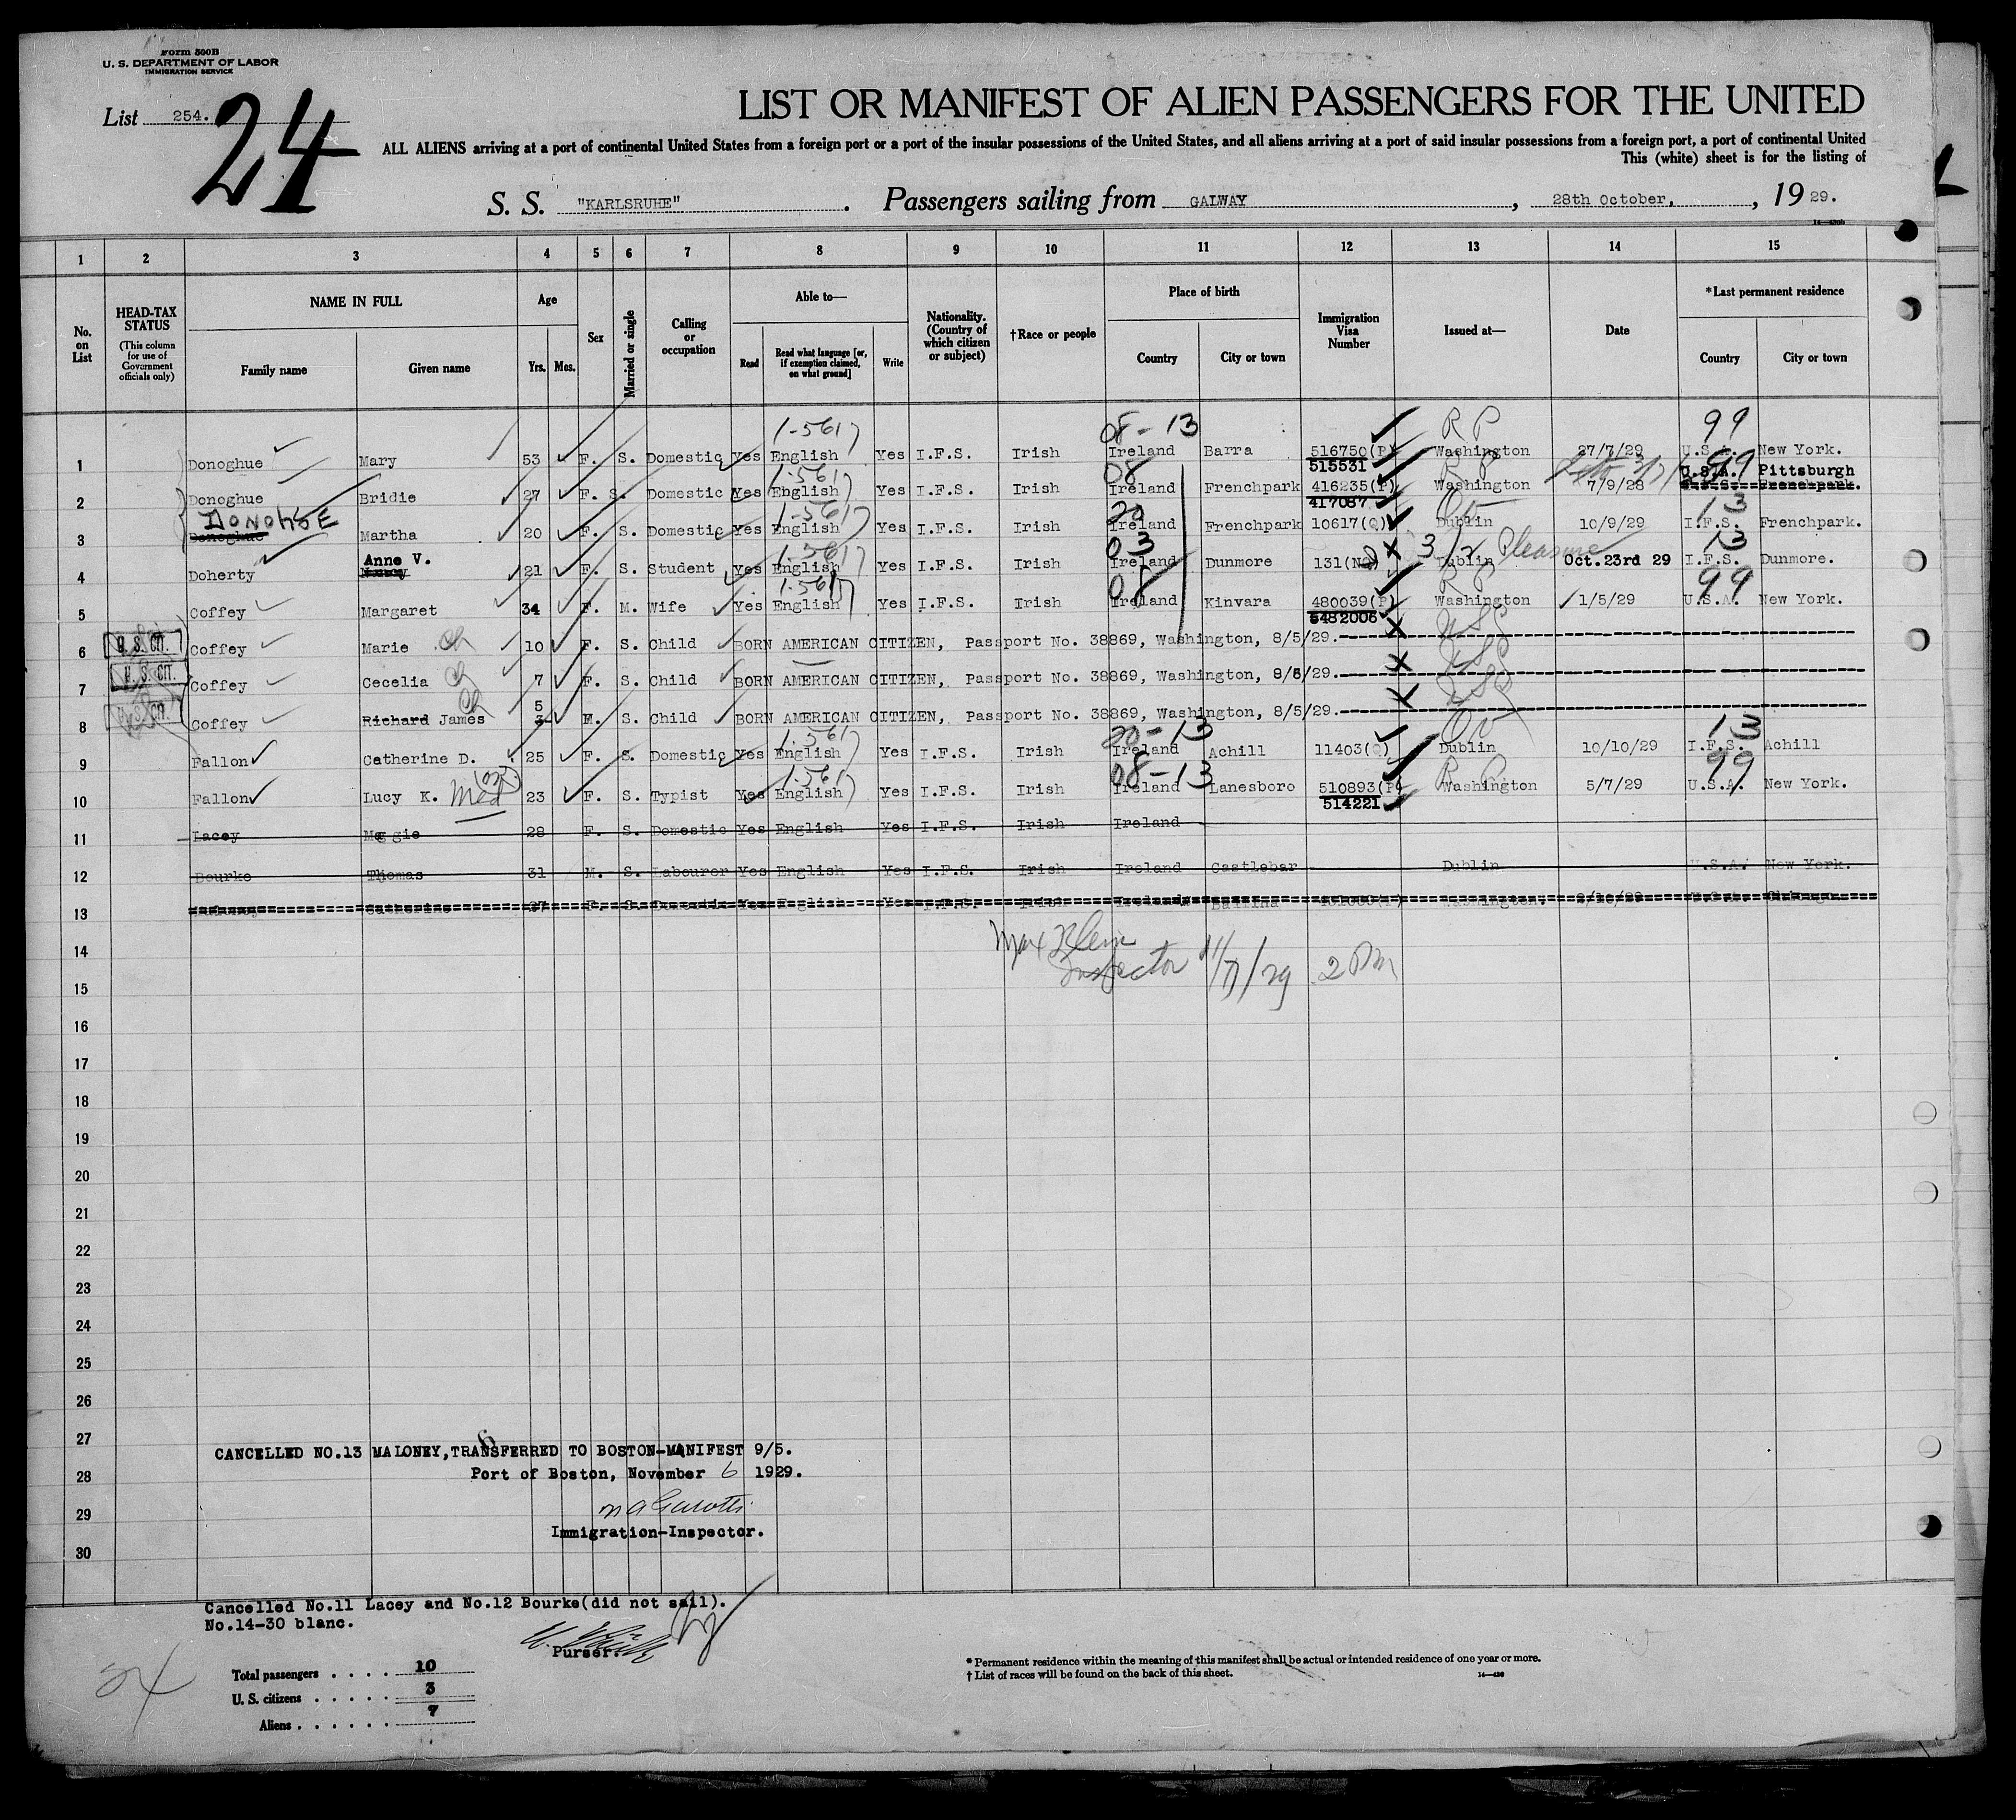 Form 500B
U. S. DEPARTMENT OF LABOR
IMMIGRATION SERVICE
List 254.
24
LIST OR MANIFEST OF ALIEN PASSENGERS FOR THE UNITED
ALL ALIENS arriving at a port of continental United States from a foreign port or a port of the insular possessions of the United States, and all aliens arriving at a port of said insular possessions from a foreign port, a port of continental United
This (white) sheet is for the listing of
S. S. "KARLSRUHE" . Passengers sailing from GALWAY , 28th October, , 19 29.
1 2 3 4 5 6 7 8 9 10 11 12 13 14 15
No. on List
HEAD-TAX STATUS
(This column for use of Government officials only)
NAME IN FULL
Family name Given name
Age
Yrs. Mos.
Sex
Married or single
Calling or occupation
Able to—
Read
Read what language [or, if exemption claimed, on what ground]
Write
Nationality. (Country of which citizen or subject)
†Race or people
Place of birth
Country City or town
Immigration Visa Number
Issued at—
Date
*Last permanent residence
Country City or town
1-5617 08-13 RP 99
1 Donoghue Mary 53 F. S. Domestic Yes English Yes I.F.S. Irish Ireland Barra 516750(P) Washington 27/7/29 U.S.A. New York.
515531
1-5617 08 RP 99 U.S.A. Pittsburgh
2 Donoghue Bridie 27 F. S. Domestic Yes English Yes I.F.S. Irish Ireland Frenchpark 416235(P) Washington 7/9/28 Frenchpark.
417087
DONOHOE 1-5617 20 13
3 Donoghue Martha 20 F. S. Domestic Yes English Yes I.F.S. Irish Ireland Frenchpark 10617(Q) Dublin 10/9/29 I.F.S. Frenchpark.
Anne V. 1-5617 03 3/2 Pleasure 13
4 Doherty Nancy 21 F. S. Student Yes English Yes I.F.S. Irish Ireland Dunmore 131(NQ) Dublin Oct.23rd 29 I.F.S. Dunmore.
1-5617 08 RP 99
5 Coffey Margaret 34 F. M. Wife Yes English Yes I.F.S. Irish Ireland Kinvara 480039(P) Washington 1/5/29 U.S.A. New York.
5482006
6 U. S. CIT. Coffey Marie Ch 10 F. S. Child BORN AMERICAN CITIZEN, Passport No. 38869, Washington, 8/5/29.
7 U. S. CIT. Coffey Cecelia Ch 7 F. S. Child BORN AMERICAN CITIZEN, Passport No. 38869, Washington, 8/5/29.
Ch 5
8 U. S. CIT. Coffey Richard James 3 M. S. Child BORN AMERICAN CITIZEN, Passport No. 38869, Washington, 8/5/29.
1-5617 20-13 13
9 Fallon Catherine D. 25 F. S. Domestic Yes English Yes I.F.S. Irish Ireland Achill 11403(Q) Dublin 10/10/29 I.F.S. Achill
1-5617 08-13 RP 99
10 Fallon Lucy K. Med 23 F. S. Typist Yes English Yes I.F.S. Irish Ireland Lanesboro 510893(P) Washington 5/7/29 U.S.A. New York.
514221
11 Lacey Meggie 28 F. S. Domestic Yes English Yes I.F.S. Irish Ireland
12 Bourke Thomas 31 M. S. Labourer Yes English Yes I.F.S. Irish Ireland Castlebar Dublin U.S.A. New York.
13 Catherine 27 F. S. Domestic Yes English Yes I.F.S. Irish Ireland Ballina Washington. U.S.A. Chicago
14
Max Klein
Inspector 11/7/29 2 PM
15
16
17
18
19
20
21
22
23
24
25
26
27
CANCELLED NO.13 MALONEY,TRANSFERRED TO BOSTON-MANIFEST 9/5.
28
Port of Boston, November 6 1929.
29
Immigration-Inspector.
30
Cancelled No.11 Lacey and No.12 Bourke(did not sail).
No.14-30 blanc.
Purser.
24
Total passengers . . . . 10
U. S. citizens . . . . . 3
Aliens . . . . . . 7
* Permanent residence within the meaning of this manifest shall be actual or intended residence of one year or more.
† List of races will be found on the back of this sheet.